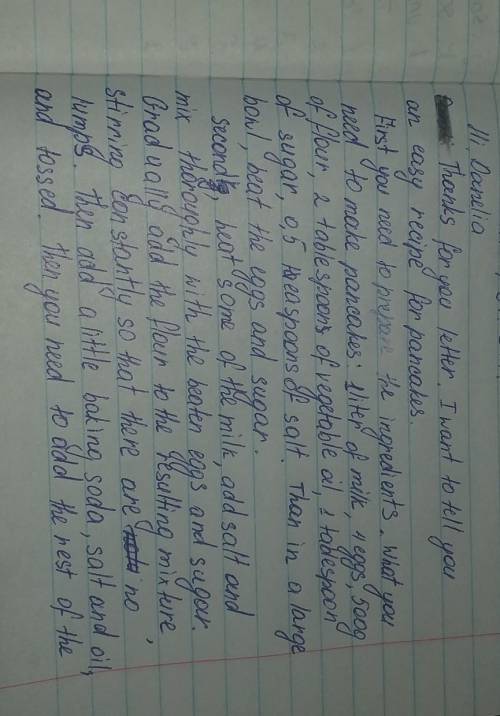 Hi Danelia
Thanks for you letter. I want to tell you
an easy recipe for pancakes.
First you need to prepare the ingredients. What you
need to make pancakes: 1 liter of milk, 4 eggs, 500g
of flour, 2 tabespoons of vegetable oil, 1 tabespoon
of sugar, 0,5 teaspoons of salt. Than in a large
bowl, beat the eggs and sugar.
Secondly, heat some of the milk, add salt and
mix thoroughly with the beaten eggs and sugar.
Gradually add the flour to the resulting mixture,
stirring constantly so that there are no
lumps. Then add a little baking soda, salt and oil,
and tossed. Then you need to add the rest of the